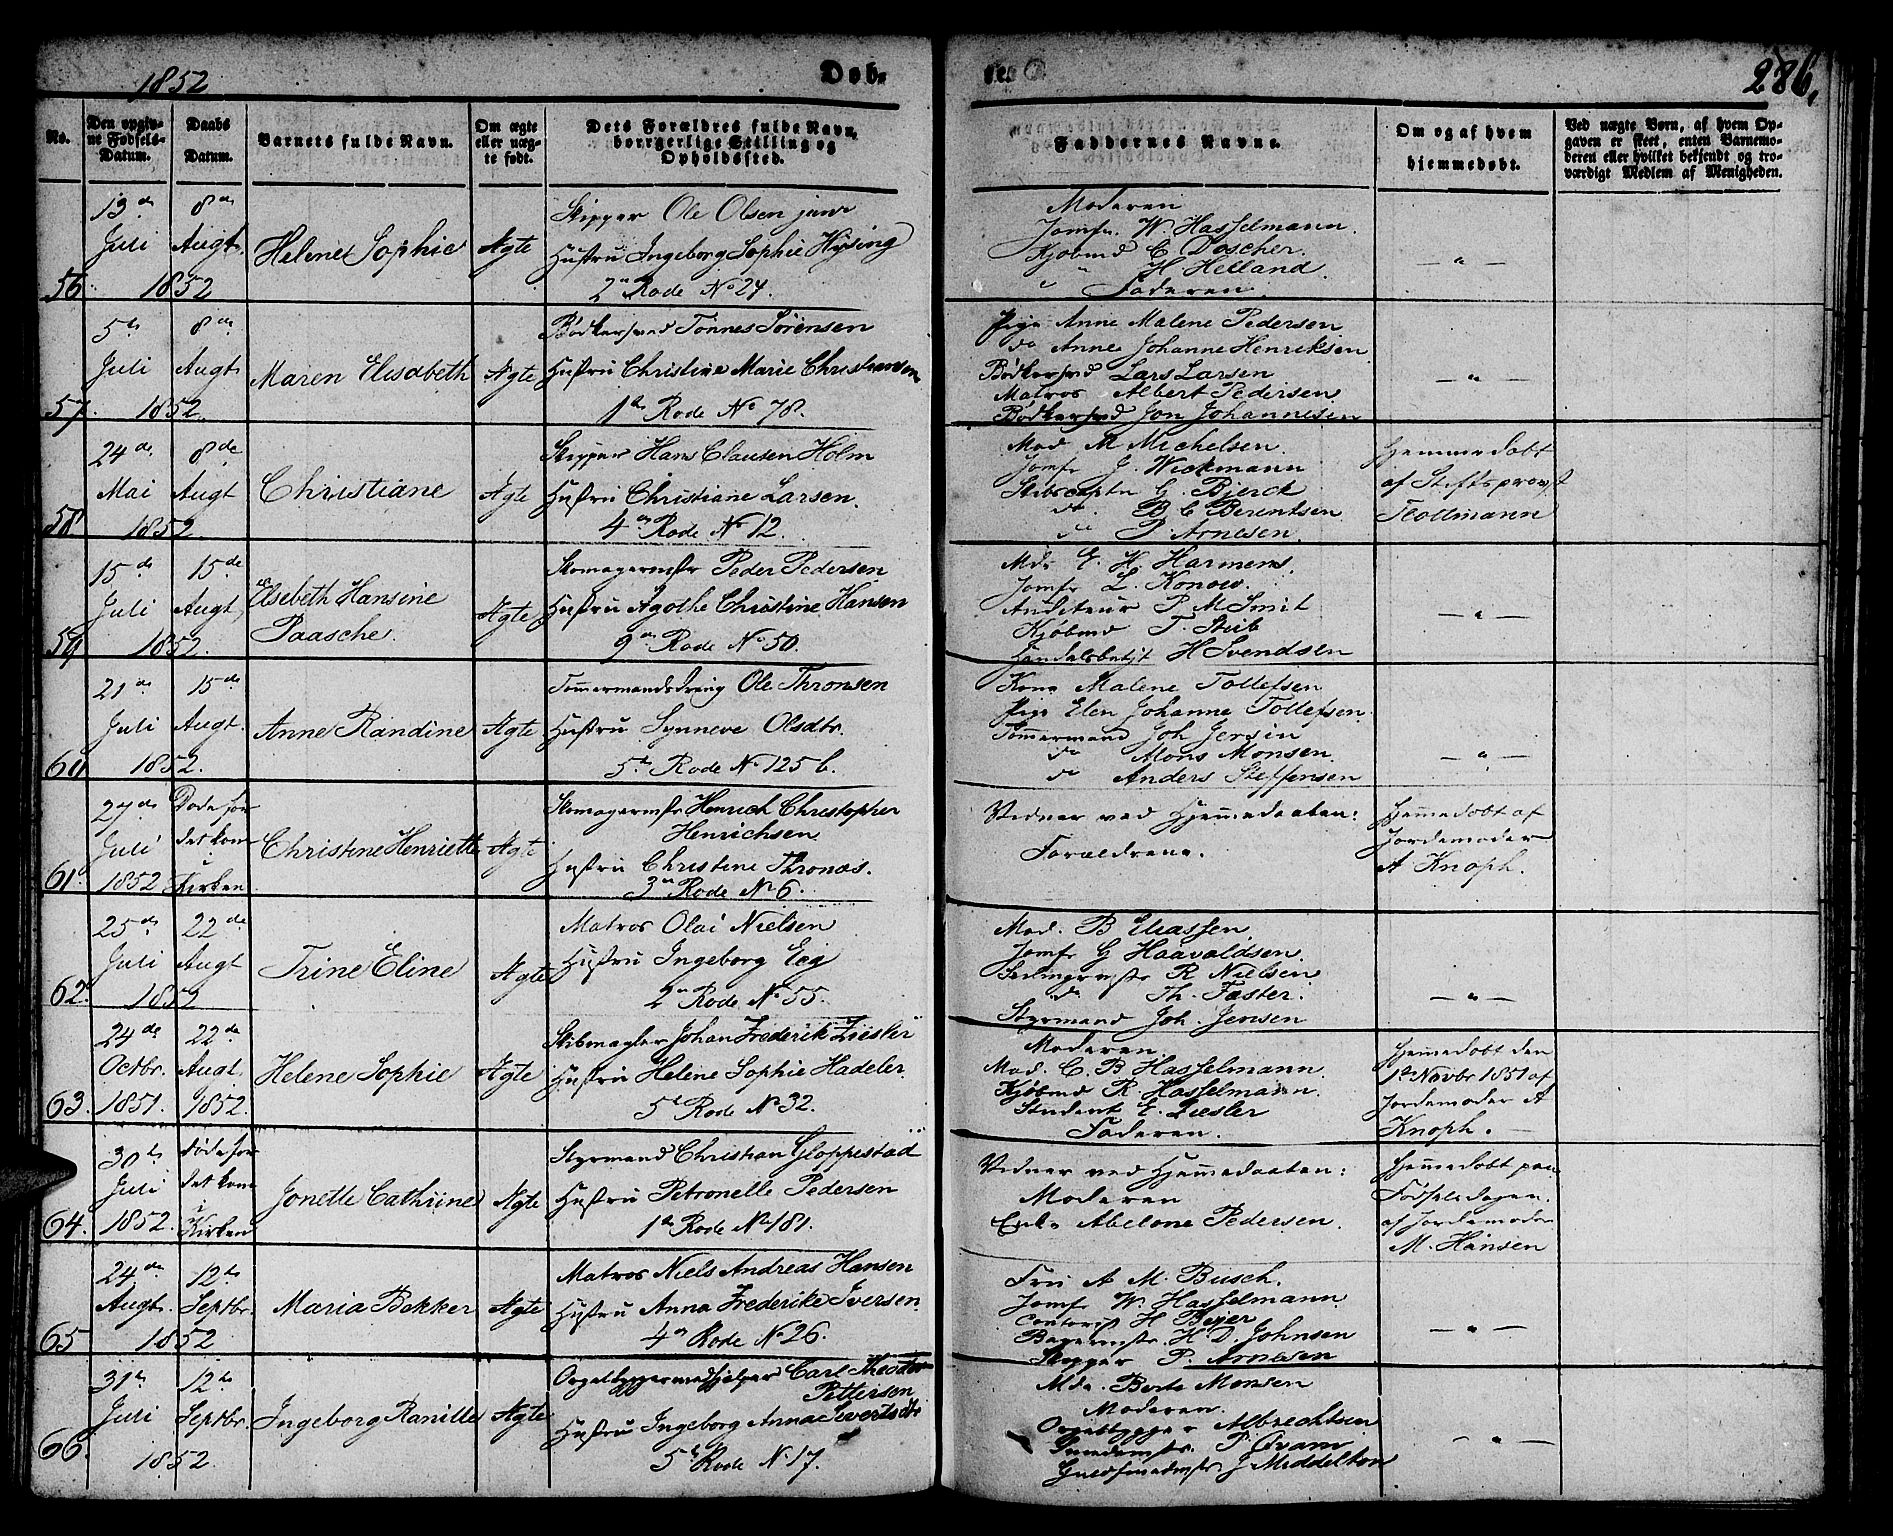 1852
Døb-
286.
No.
Den opgiv-
ne Fødsels-
Datum.
Daabs
Datum.
Barnets fulde Navn.
Om ægte
eller uæg-
te født.
Dets Forældres fulde Navn,
borgerlige Stilling og
Opholdssted.
Faddernes Navne.
Om og af hvem
hjemmedøbt.
Ved uægte Børn, af hvem Op-
gaven er skeet, enten Barnemo-
deren eller hvilket bekjendt og tro-
værdigt Medlem af Menigheden.
56.
13de
Juli
1852
8de
Augt.
Helene Sophie
Ægte
Skipper Ole Olsen junr
Hustru Ingeborg Sophie Hysing
2n Rode No 24.
Moderen
Jomfr. W. Hasselmann.
Kjøbmd C. Doscher.
" H Helland.
Faderen.
— " —
57.
5te
Juli
1852.
8de
Augt.
Maren Elisabeth
Ægte
Bødkersvd Tönnes Sörensen
Hustru Christine Marie Christiansen
1te Rode No 78.
Pige Anne Malene Pedersen
do Anne Johanne Henriksen
Bödkersvd Lars Larsen
Matros Albert Pedersen
Bödkersvd Jon Johannesen
— " —
58
24de
Mai
1852.
8de
Augt
Christiane
Ægte
Skipper Hans Clausen Holm
Hustru Christiane Larsen.
4de Rode No 12.
Mad M Michelsen.
Jomfr J. Wickmann
Skibscaptn G. Bjerck
do. B C Berentsen
P. Arnesen.
Hjemmedøbt
af Stiftsprovst
Flottmann
59
15de
Juli
1852.
15de
Augt
Elsebeth Hansine
Paasche.
Ægte
Skomagermstr Peder Pedersen
Hustru Agathe Christine Hansen
9de Rode No 50.
Md. E. H. Harmens.
Jomfr L. Konow.
Auditeur P. M Smit
Kjøbmd T. Stub
Handelsbetjt H Svendsen
— " —
60
21de
Juli
1852.
15de
Augt.
Anne Randine
Ægte
Tømmermandsdreng Ole Thronsen
Hustru Synneve Olsdtr.
5te Rode No 125 b.
Kone Malene Tollefsen
Pige Elen Johanne Tollefsen.
Tömmermand Joh Jersin
do Mons Monsen.
do Anders Steffensen
— " —
61
27de
Juli
1852
Døde før
det kom
i
Kirken
Christine Henriette
Ægte
Skomagermstr Henrich Christopher
Henrichsen
Hustru Christine Thronæs.
3de Rode No 6.
Vidner ved Hjemmedaaben:
Forældrene.
Hjemmedøbt af
Jordemoder
A Knoph.
62.
25de
Juli
1852
22de
Augt
Trine Eline
Ægte
Matros Olai Nielsen
Hustru Ingeborg Eeg
2n Rode No 55.
Mad. B Eliassen.
Jomfr G Haavaldsen.
R Nielsen
do Th. Faster.
Styrmand Joh. Jensen
— " —
63.
24de
Octbr.
1851.
22de
Augt.
1852.
Helene Sophie
Ægte
Skibsmægler Johan Frederik Ziesler
Hustru Helene Sophie Hadeler.
5te Rode No 32.
Moderen.
Mad. C. B Hasselmann.
Kjøbmd R. Hasselmann.
Student E. Ziesler
Faderen.
Hjemmedøbt den
1te Novbr 1851 af
Jordemoder A
Knoph.
64.
30te
Juli
1852.
Døde før
det kom
i
Kirken
Jonette Cathrine
Ægte
Styrmand Christian Gloppestad
Hustru Petronelle Pedersen
1te Rode No 181.
Vidner ved Hjemmedaaben:
Moderen
Enke Abelone Pedersen.
Hjemmedøbt paa
Fødselsdagen.
af Jordemoder
M. Hansen
65
24de
Augt.
1852
12te
Septbr.
Maria Bekker
Ægte
Matros Niels Andreas Hansen
Hustru Anna Frederike Iversen.
4de Rode No 26.
Fru A M. Busch.
Jomfr W. Hasselmann.
Contorist H Beyer
Bagermstr. H D. Johnsen
Skipper P. Arnesen
— " —
66.
31te
Juli
1852.
12te
Septbr.
Ingeborg Ranille
Ægte
Orgelbyggermedhjelper Carl Theodor
Pettersen
Hustru Ingeborg Anna Sivertsdtr
5te Rode No 17.
Md. Berte Monsen
Moderen.
Orgelbygger Albrechtsen
P. Qvam
Guldsmedmstr J Middelton
— " —